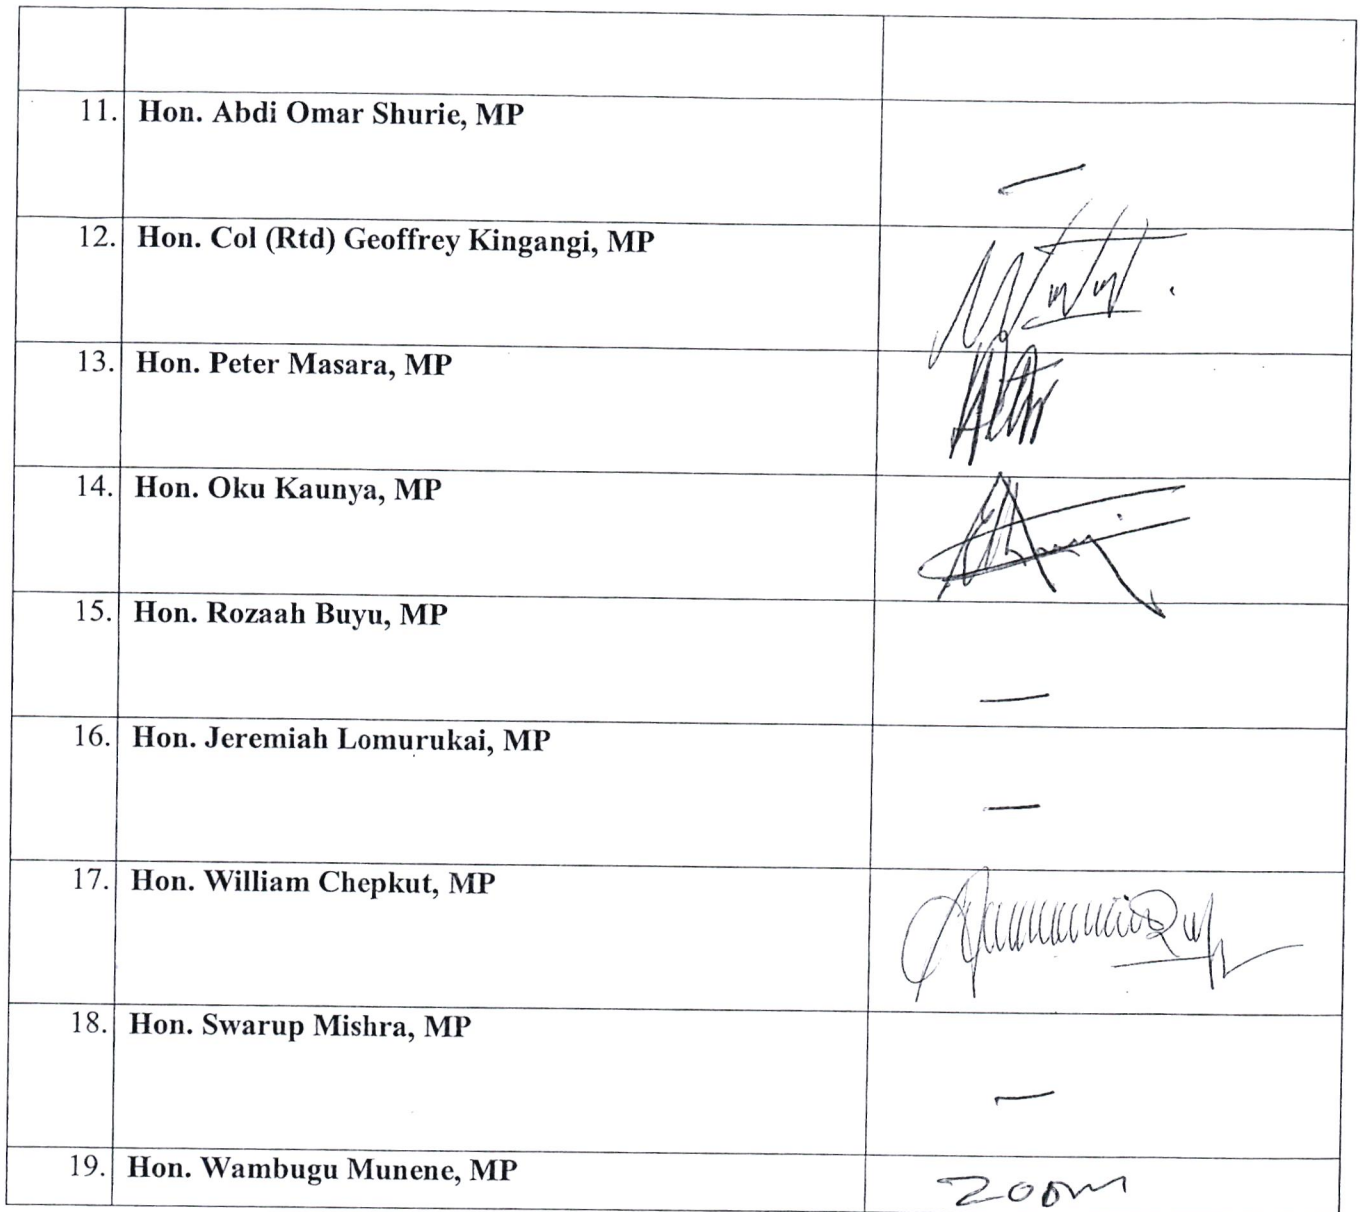 11. Hon. Abdi Omar Shurie, MP
12. Hon. Col (Rtd) Geoffrey Kingangi, MP
13. Hon. Peter Masara, MP
14. Hon. Oku Kaunya, MP
15. Hon. Rozaah Buyu, MP
16. Hon. Jeremiah Lomurukai, MP
17. Hon. William Chepkut, MP
18. Hon. Swarup Mishra, MP
19. Hon. Wambugu Munene, MP zoom